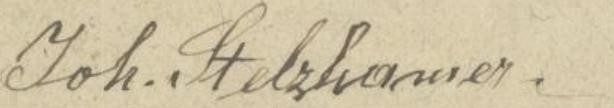 Joh. Stelzhamer.